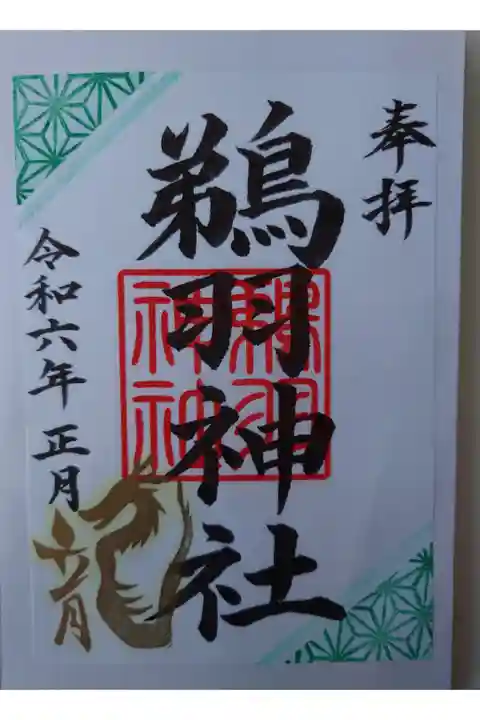 奉拝
鵜羽神社
令和六年 正月
龍
鵜羽
神社